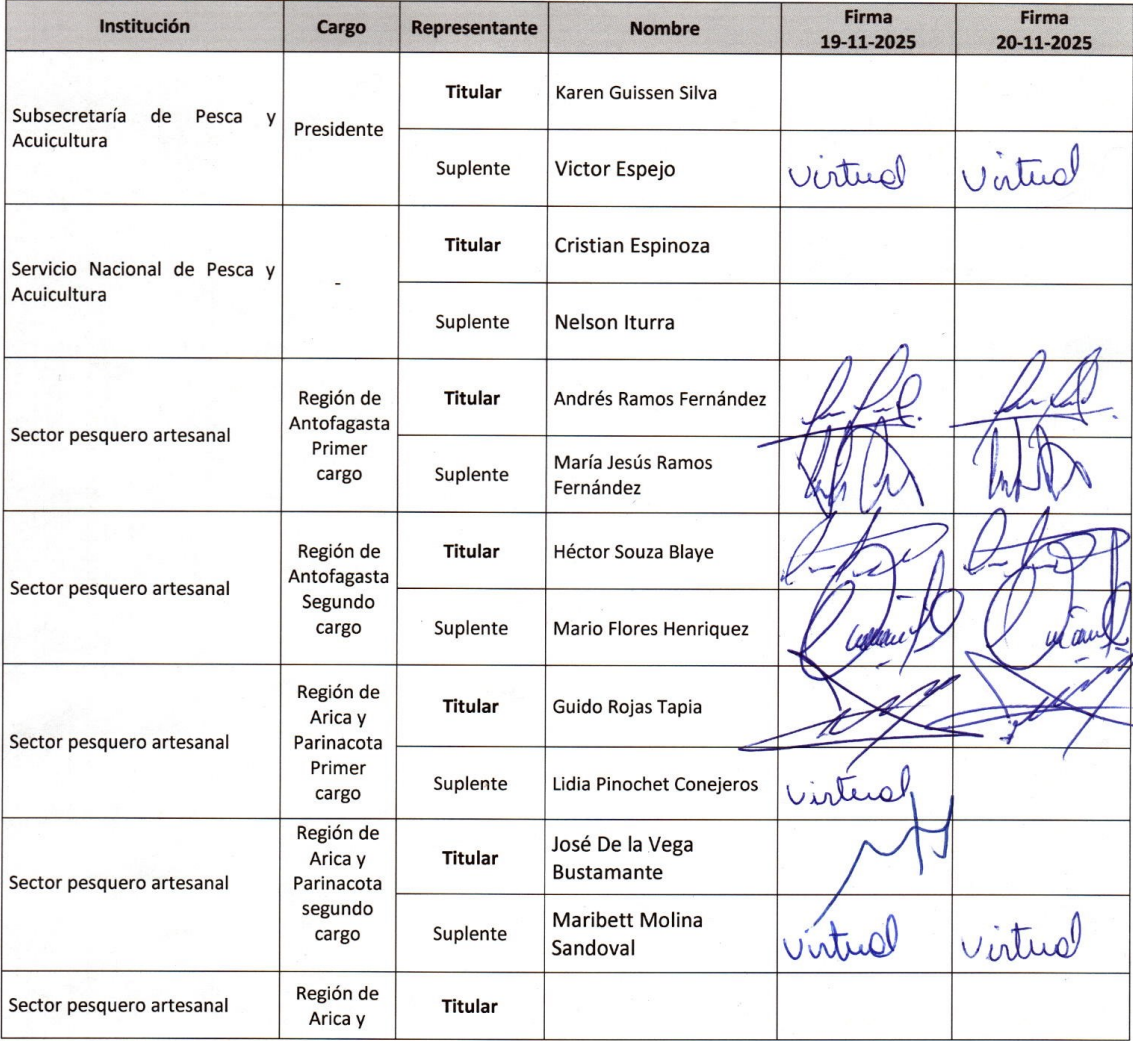 Institución Cargo Representante Nombre Firma 19-11-2025 Firma 20-11-2025
Subsecretaría de Pesca y Acuicultura
Presidente
Titular Karen Guissen Silva
Suplente Victor Espejo virtual virtual
Servicio Nacional de Pesca y Acuicultura
-
Titular Cristian Espinoza
Suplente Nelson Iturra
Sector pesquero artesanal
Región de Antofagasta Primer cargo
Titular Andrés Ramos Fernández
Suplente María Jesús Ramos Fernández
Sector pesquero artesanal
Región de Antofagasta Segundo cargo
Titular Héctor Souza Blaye
Suplente Mario Flores Henriquez
Sector pesquero artesanal
Región de Arica y Parinacota Primer cargo
Titular Guido Rojas Tapia
Suplente Lidia Pinochet Conejeros virtual
Sector pesquero artesanal
Región de Arica y Parinacota segundo cargo
Titular José De la Vega Bustamante
Suplente Maribett Molina Sandoval virtual virtual
Sector pesquero artesanal
Región de Arica y
Titular